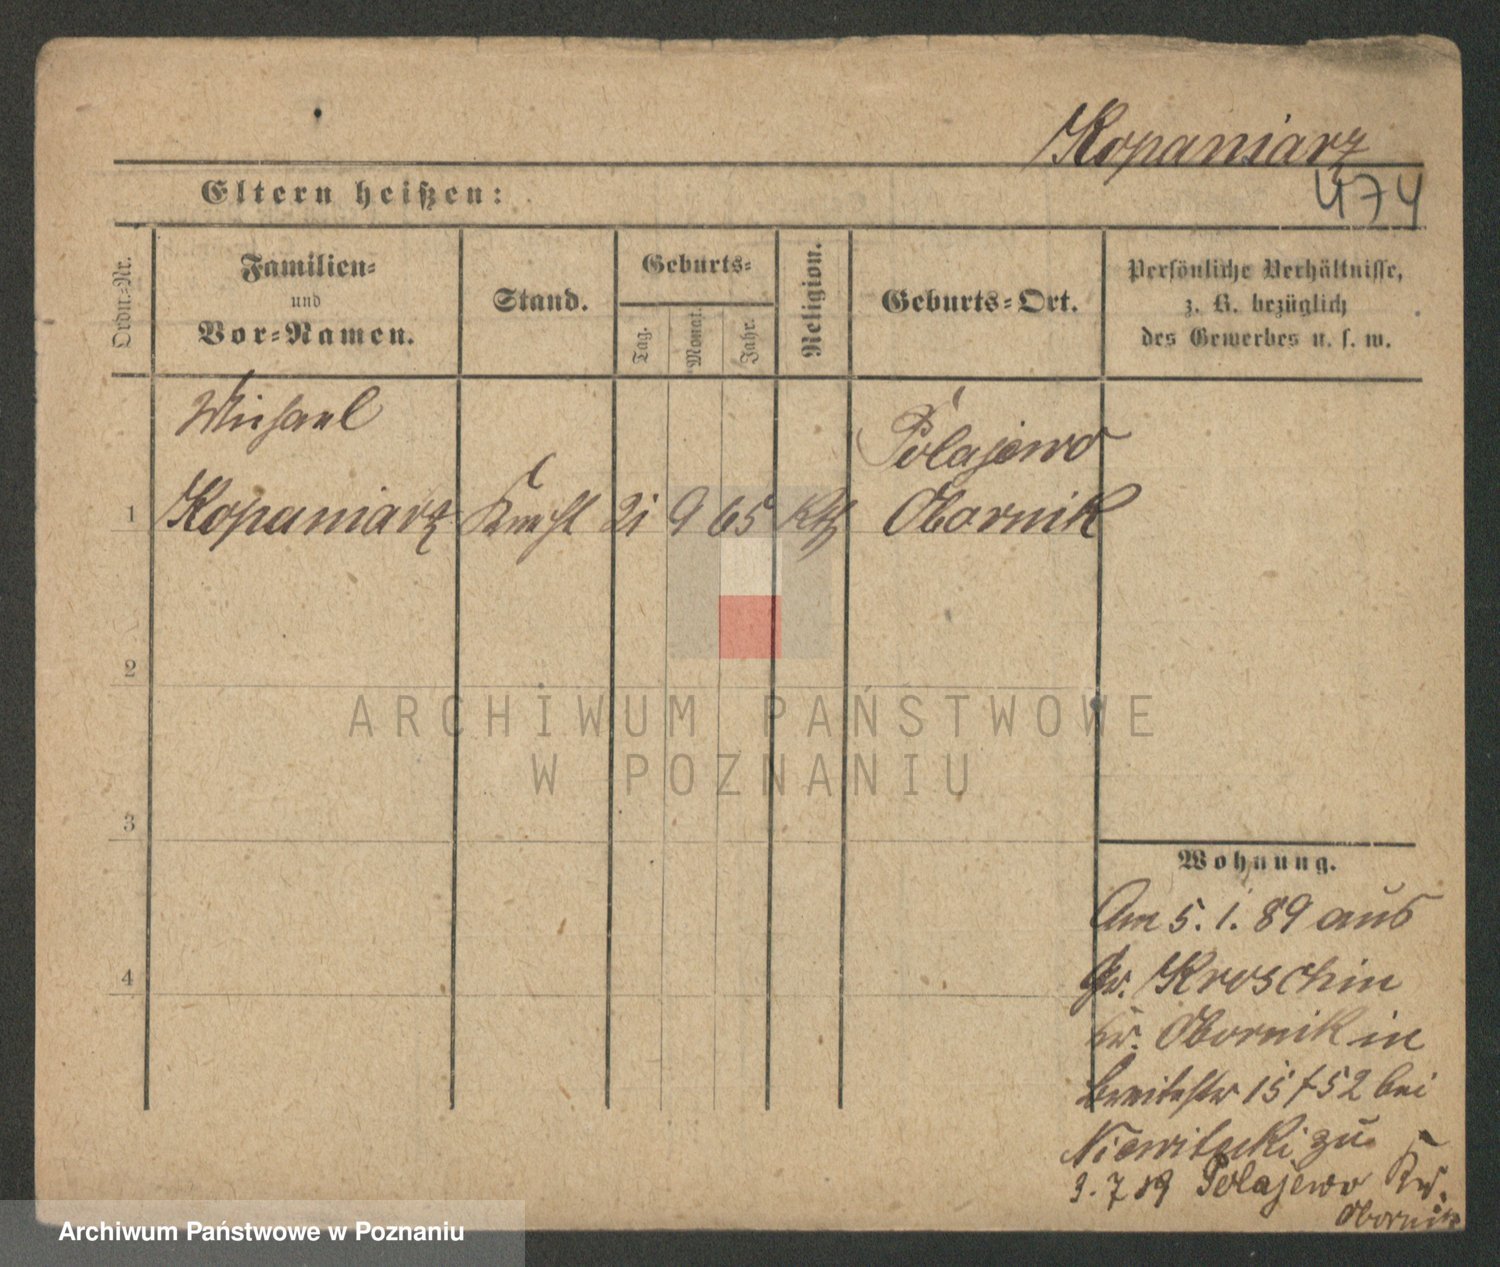 Kopaniarz
474
Eltern heißen:
Ordn.-Nr.
Familien-
und
Vor-Namen.
Stand.
Geburts-
Tag.
Monat.
Jahr.
Religion.
Geburts-Ort.
Persönliche Verhältnisse,
z. B. bezüglich
des Gewerbes u. s. w.
Michael
Kopaniarz
1
Knecht
21
9
65
Kth
Polajewo
Obornik
2
ARCHIWUM PAŃSTWOWE
W POZNANIU
3
4
Wohnung.
Am 5. 1. 89 aus
Gr. Kroschin
Kr. Obornik in
Breitestr 15 / 52 bei
zu.
3. 7 89 Polajewo Kr.
Obornik
Archiwum Państwowe w Poznaniu